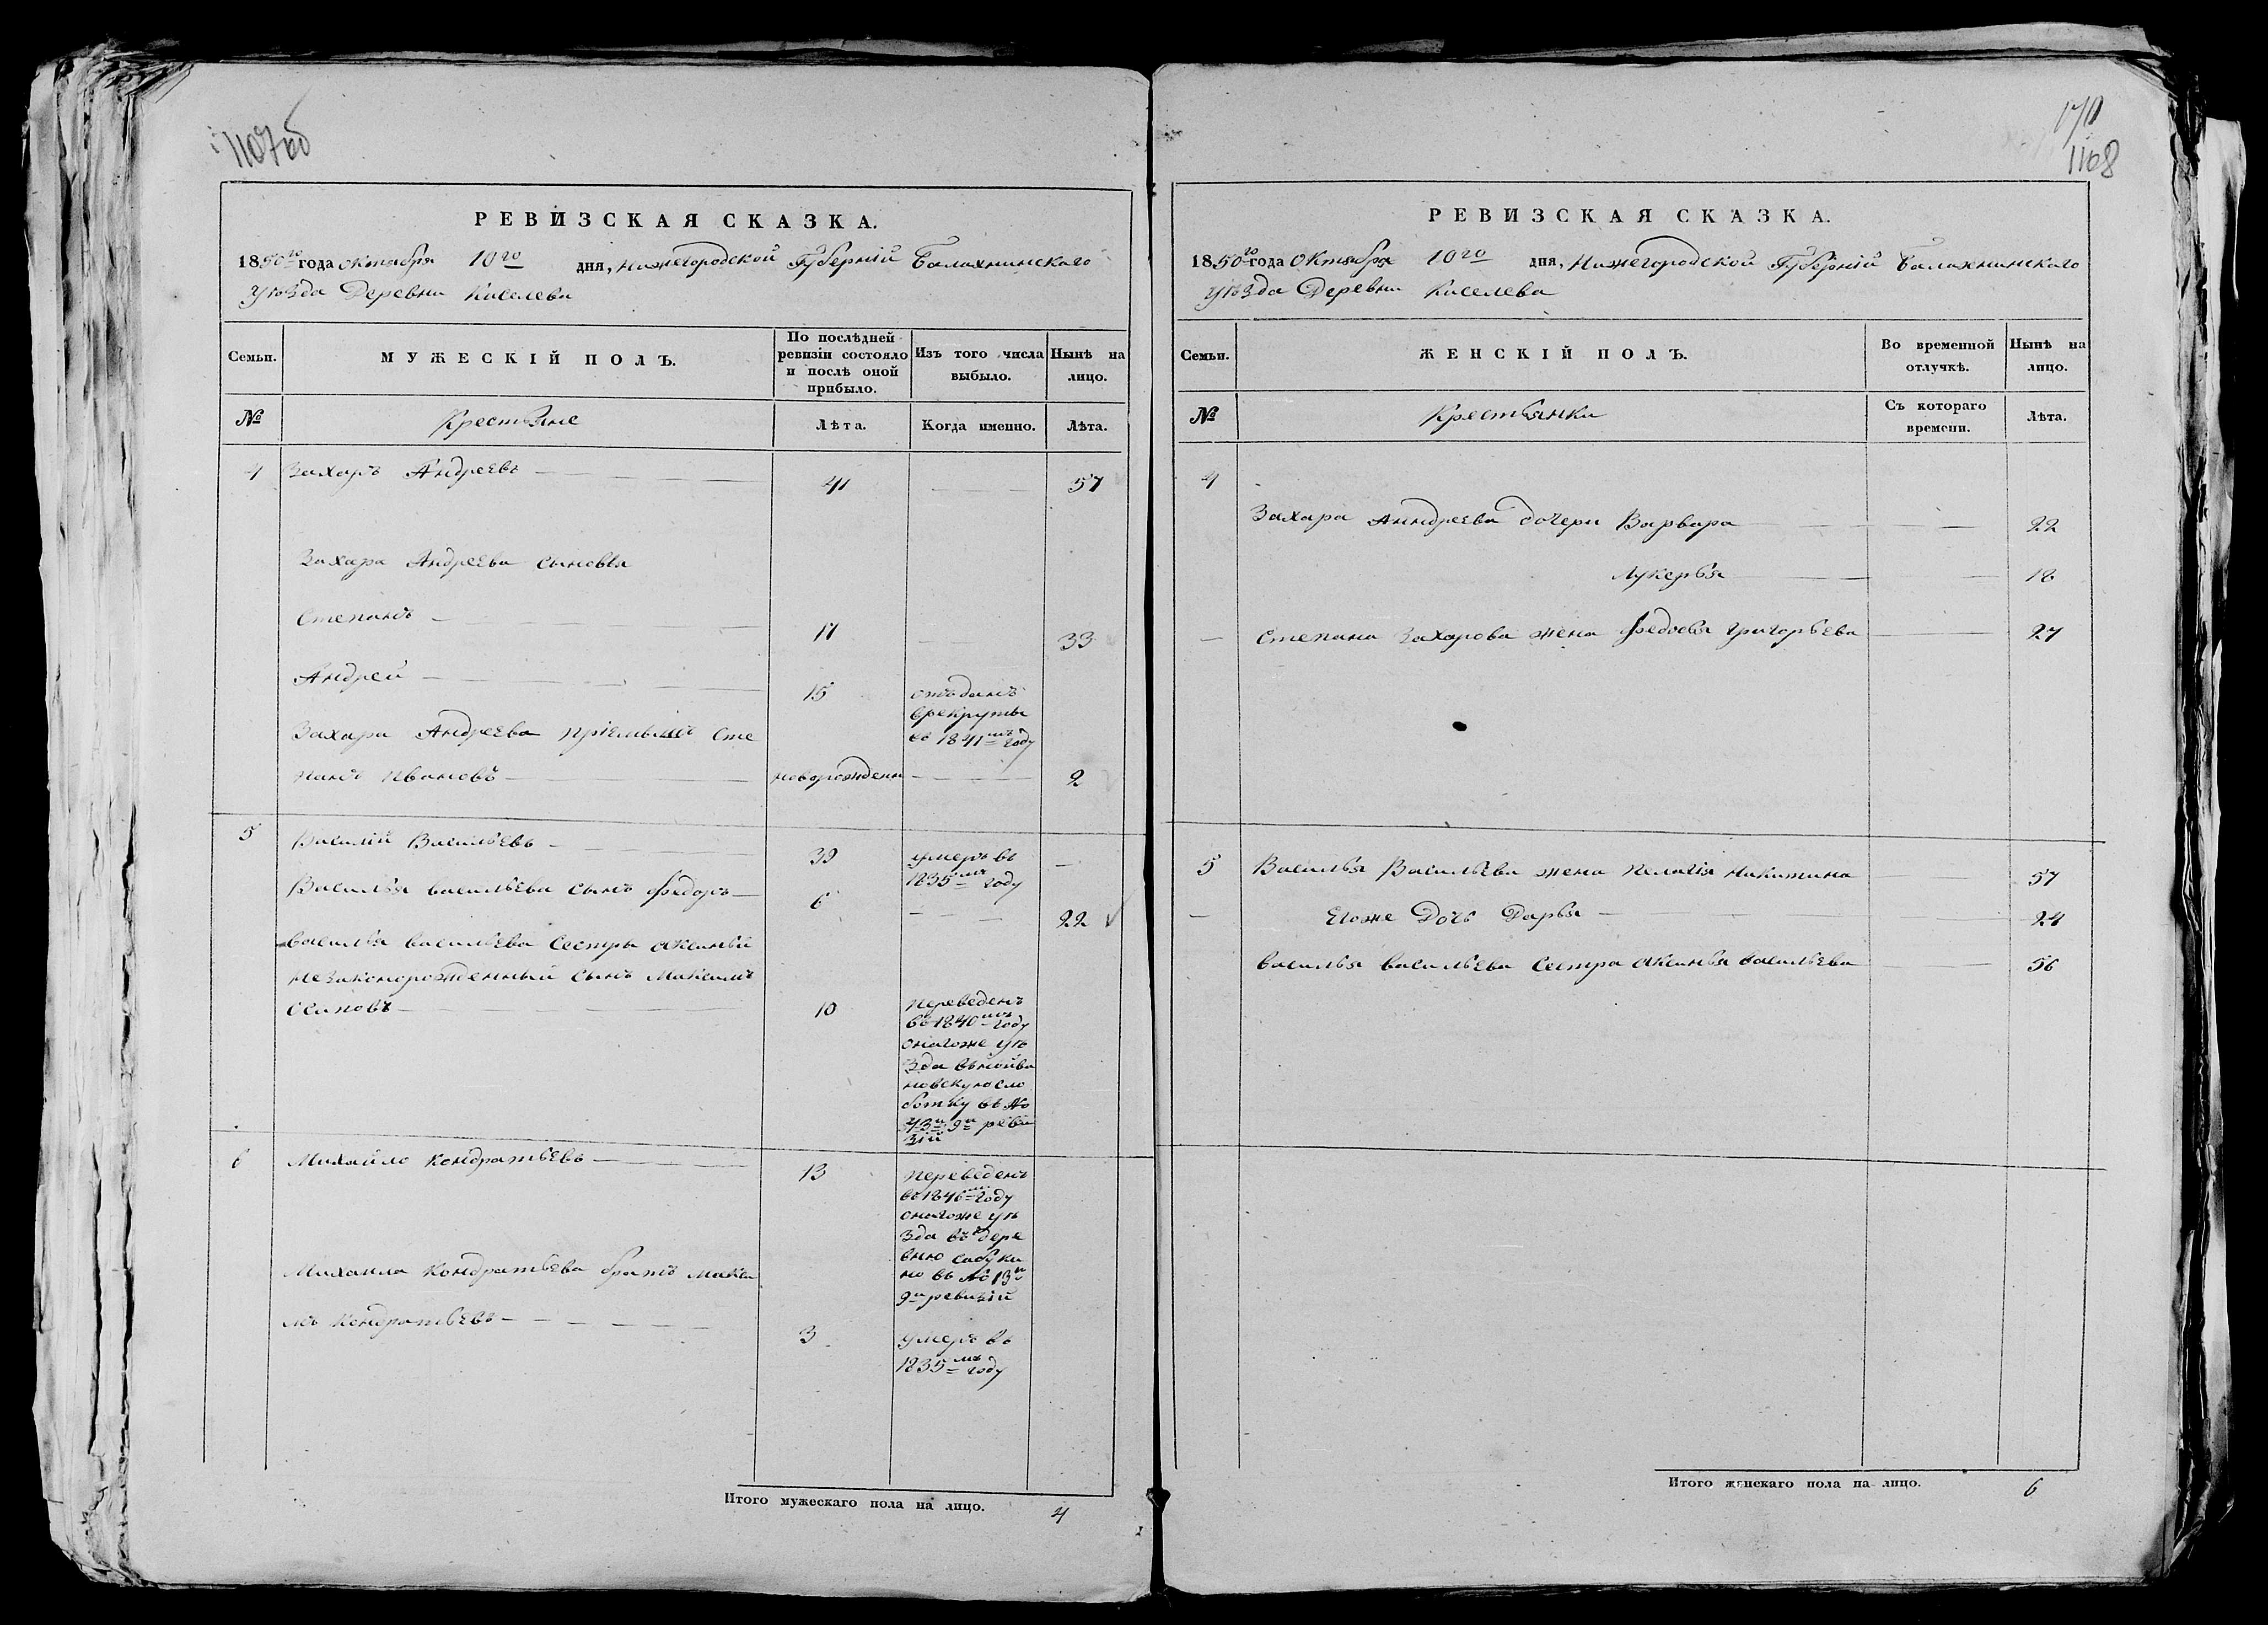 1107об
РЕВИЗСКАЯ СКАЗКА.
1850го года октября 10го дня, Нижегородской Губерніи Балахнинскаго
Уѣзда Деревни Киселева
Семьи.
МУЖЕСКІЙ ПОЛЪ.
По послѣдней ревизіи состояло и послѣ оной прибыло.
Изъ того числа выбыло.
Нынѣ на лицо.
№
Крестьяне
Лѣта.
Когда именно.
Лѣта.
4 Захаръ Андреевъ 41 57
Захара Андреева сыновья
Степанъ 17 33
Андрей 15 отъданъ
врекруты
въ 1841мъ году
Захара Андреева пріемышъ Сте
панъ Ивановъ новорожден 2
5 Василій Васильевъ 39 умеръ въ
1835мъ году
Василья васильева сынъ Федоръ 6 22
василья васильева Сестры аксиньи
незаконорожденный сынъ Максимъ
Осиповъ 10 переведенъ
въ 1840мъ году
онагоже уѣ
зда
новскую сло
ботку въ №
43й 9й реви
зіи
6 Михайло Кондратьевъ 13 переведенъ
въ 1846мъ году
онагоже уѣ
зда въ дере
вню сабуки
но въ № 13й
9й ревизіи
Михаила Кондратьева братъ Макси
мъ Кондратьевъ 3 умеръ въ
1835мъ году
Итого мужескаго пола на лицо. 4
170
1108
РЕВИЗСКАЯ СКАЗКА.
1850го года Октября 10го дня, Нижегородской Губерніи Балахнинскаго
Уѣзда Деревни Киселева
Семьи.
ЖЕНСКІЙ ПОЛЪ.
Во временной отлучкѣ.
Нынѣ на лицо.
№
Крестьянки
Съ котораго времени.
Лѣта.
4
Захара Анндреева дочери Варвара 22
Лукерья 18
Степана Захарова жена Федосья григорьева 27
5 Василья Васильева жена Пелагія Никитина 57
Егоже Дочь Дарья 24
василья васильева Сестра аксинья васильева 56
Итого женскаго пола на лицо. 6